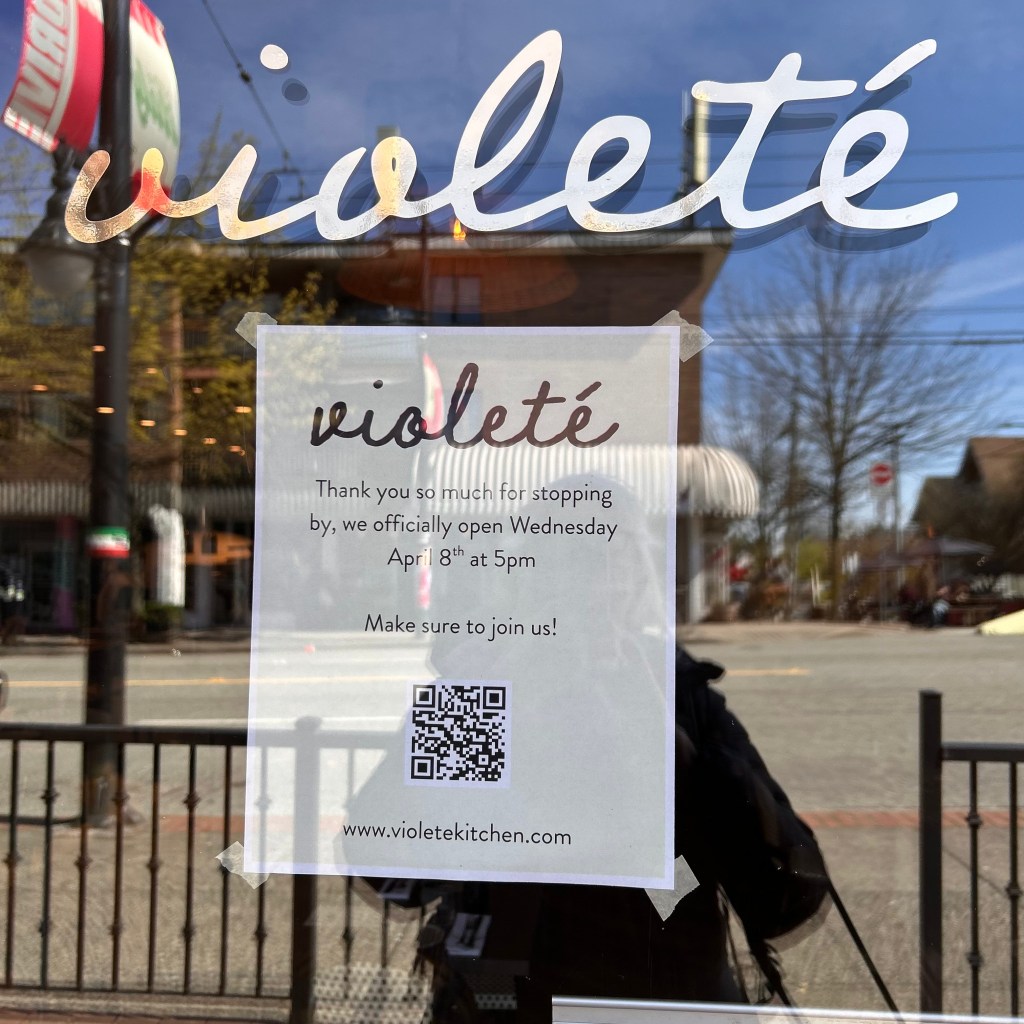 violeté
violeté
Thank you so much for stopping
by, we officially open Wednesday
April 8th at 5pm
Make sure to join us!
www.violetekitchen.com